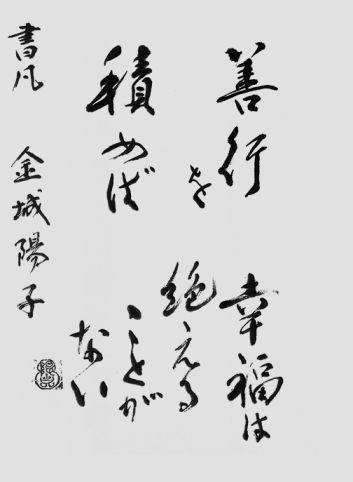 善行を
積めば
幸福は
絶える
ことが
ない
書凡 金城陽子